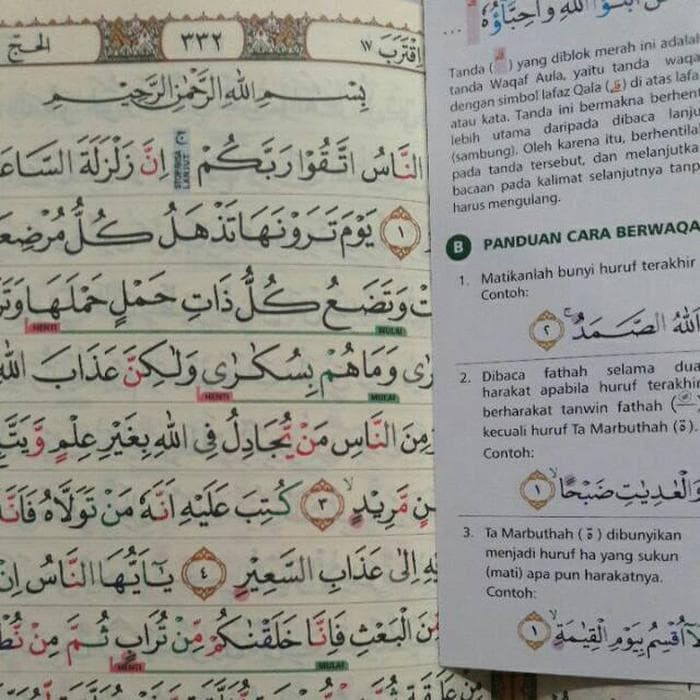 الحجّ
٣٣٢
اِقْتَرَبَ ١٧
بِسْمِ اللهِ الرَّحْمٰنِ الرَّحِيْمِ
النَّاسُ اتَّقُوْا رَبَّكُمْ ۚ اِنَّ زَلْزَلَةَ السَّاعَ
١ يَوْمَ تَرَوْنَهَا تَذْهَلُ كُلُّ مُرْضِعَ
وَتَضَعُ كُلُّ ذَاتِ حَمْلٍ حَمْلَهَا وَتَرَ
HENTI MULAI
وَمَا هُمْ بِسُكٰرٰى وَلٰكِنَّ عَذَابَ اللّٰهِ
HENTI MULAI
مِنَ النَّاسِ مَنْ يُّجَادِلُ فِى اللّٰهِ بِغَيْرِ عِلْمٍ وَّيَتَّ
مَّرِيْدٍ ۙ ٣ كُتِبَ عَلَيْهِ اَنَّهٗ مَنْ تَوَلَّاهُ فَاَنَّ
اِلٰى عَذَابِ السَّعِيْرِ ٤ يٰٓاَيُّهَا النَّاسُ اِنْ
مِّنَ الْبَعْثِ فَاِنَّا خَلَقْنٰكُمْ مِّنْ تُرَابٍ ثُمَّ مِنْ نُّطْ
HENTI MULAI
اللّٰهِ وَاَحِبَّاۤؤُهٗ
Tanda ( قلى ) yang diblok merah ini adalah
tanda Waqaf Aula, yaitu tanda waqa
dengan simbol lafaz Qala ( قلى ) di atas lafa
atau kata. Tanda ini bermakna berhent
lebih utama daripada dibaca lanju
(sambung). Oleh karena itu, berhentila
pada tanda tersebut, dan melanjutka
bacaan pada kalimat selanjutnya tanp
harus mengulang.
B PANDUAN CARA BERWAQA
1. Matikanlah bunyi huruf terakhir
Contoh:
اَللّٰهُ الصَّمَدُ ۚ ٢
2. Dibaca fathah selama dua
harakat apabila huruf terakhir
berharakat tanwin fathah ( ـً )
kecuali huruf Ta Marbuthah ( ة ).
Contoh:
وَالْعٰدِيٰتِ ضَبْحًا ۙ ١
3. Ta Marbuthah ( ة ) dibunyikan
menjadi huruf ha yang sukun
(mati) apa pun harakatnya.
Contoh:
لَاۤ اُقْسِمُ بِيَوْمِ الْقِيٰمَةِ ۙ ١